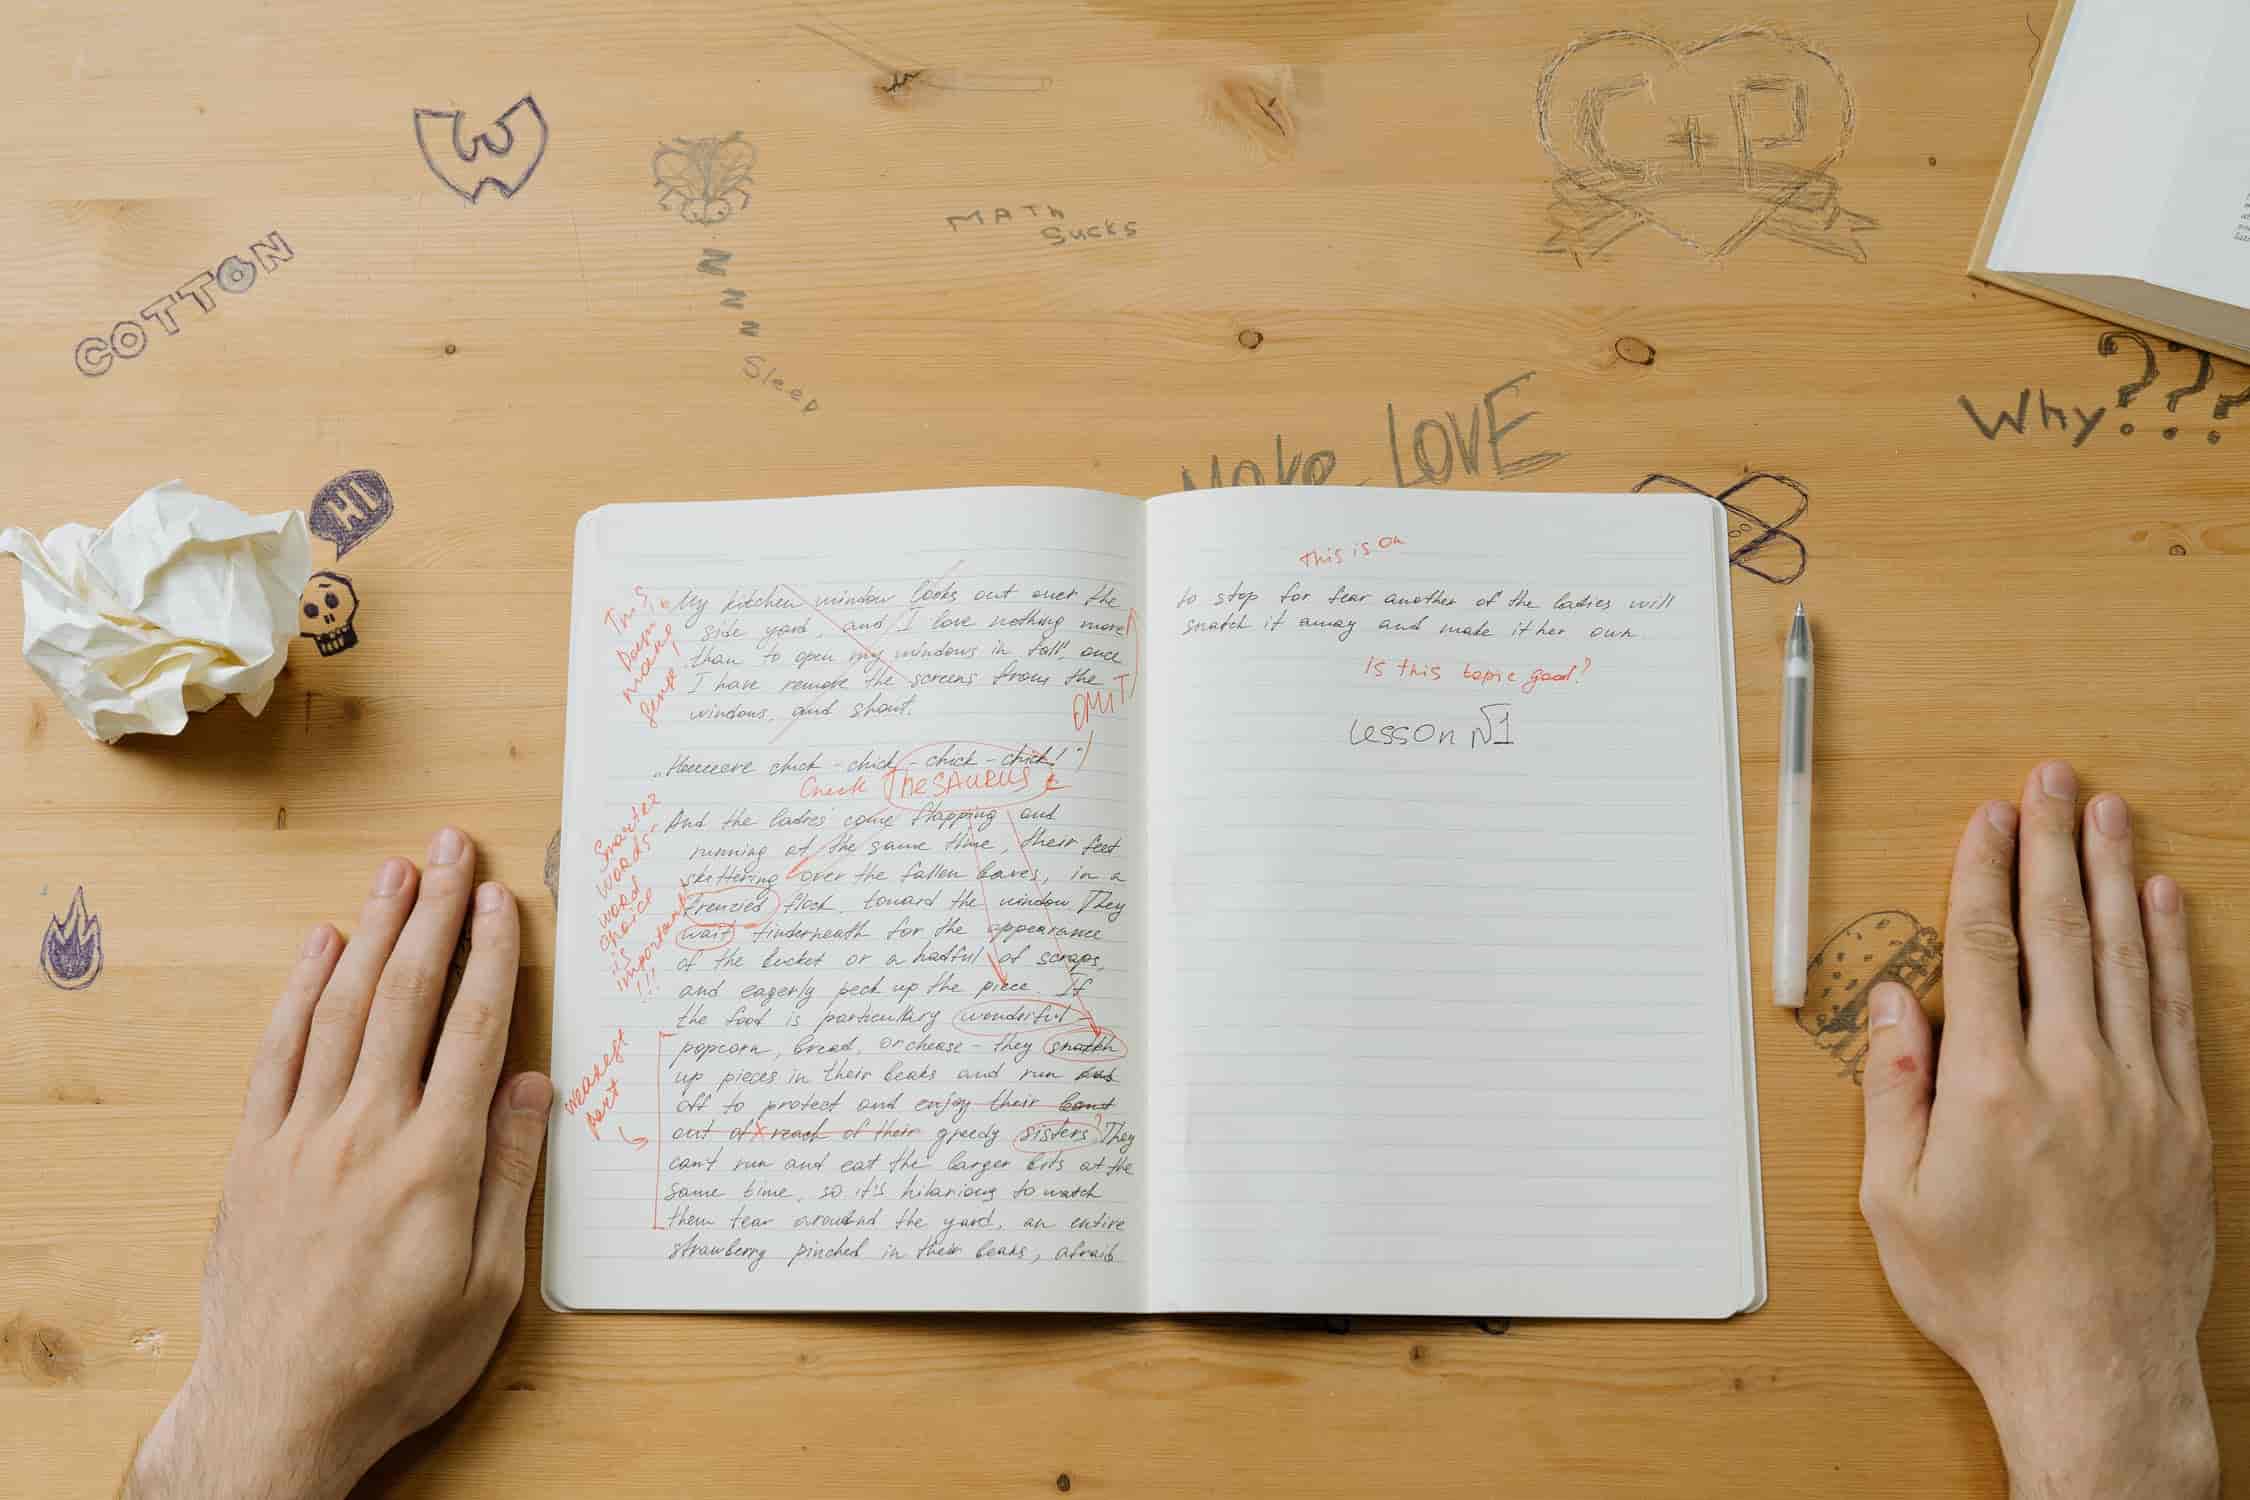 C+P
W
MATH
Sucks
COTTON
Z
Z
Z
Sleep
Why???
Make LOVE
HI
This
Doesn't
make
sense
My kitchen window looks out over the
side yard, and I love nothing more
than to open my windows in fall, once
I have remove the screens from the
windows, and shout.
OMIT
„Heeeeere chick - chick - chick - chick!"
Check THESAURUS
Smarter
words-
word
choice
is
important
!!!
And the ladies come flapping and
running at the same time, their feet
skittering over the fallen leaves, in a
frenzied flock, toward the window. They
wait underneath for the appearance
of the bucket or a hatful of scraps,
and eagerly peck up the piece. If
the food is particullary wonderful -
weakest
part
popcorn, bread, or chease - they snatch
up pieces in their beaks and run
off to protect and enjoy their
out of reach of their greedy sisters? They
can't run and eat the larger bits at the
same time, so it's hilarious to watch
them tear around the yard, an entire
strawberry pinched in their beaks, afraid
This is ok
to stop for fear another of the ladies will
snatch it away and make it her own
is this topic good?
Lesson №1